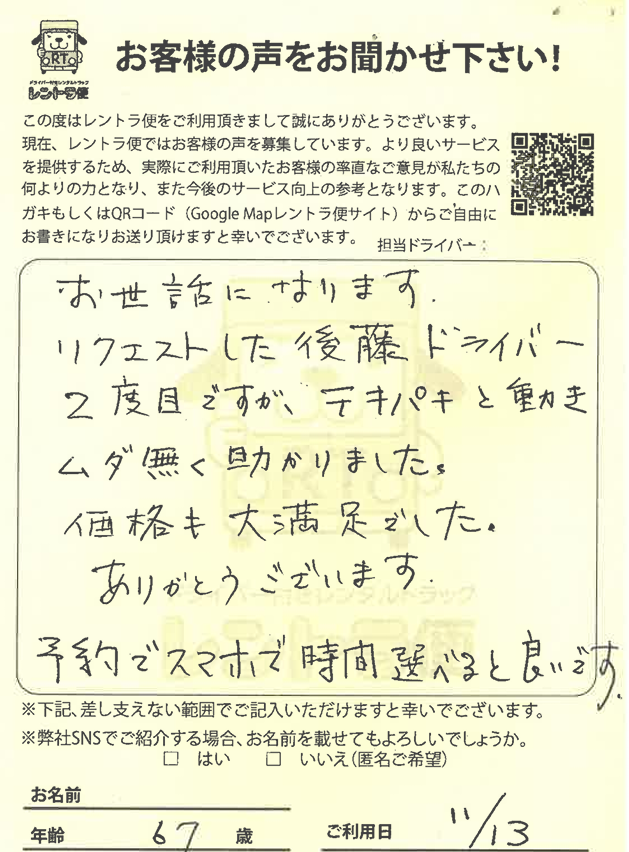 RT
ドライバー付きレンタルトラック
レントラ便
お客様の声をお聞かせ下さい!
この度はレントラ便をご利用頂きまして誠にありがとうございます。
現在、レントラ便ではお客様の声を募集しています。より良いサービス
を提供するため、実際にご利用頂いたお客様の率直なご意見が私たちの
何よりの力となり、また今後のサービス向上の参考となります。このハ
ガキもしくはQRコード（Google Mapレントラ便サイト）からご自由に
お書きになりお送り頂けますと幸いでございます。
担当ドライバー：
お世話になります.
リクエストした後藤ドライバー
2度目ですが、テキパキと動き
ムダ無く助かりました。
価格も大満足でした。
ありがとうございます.
予約でスマホで時間選べると良いです.
※下記、差し支えない範囲でご記入いただけますと幸いでございます。
※弊社SNSでご紹介する場合、お名前を載せてもよろしいでしょうか。
□ はい □ いいえ(匿名ご希望)
お名前
年齢 67 歳 ご利用日 11/13